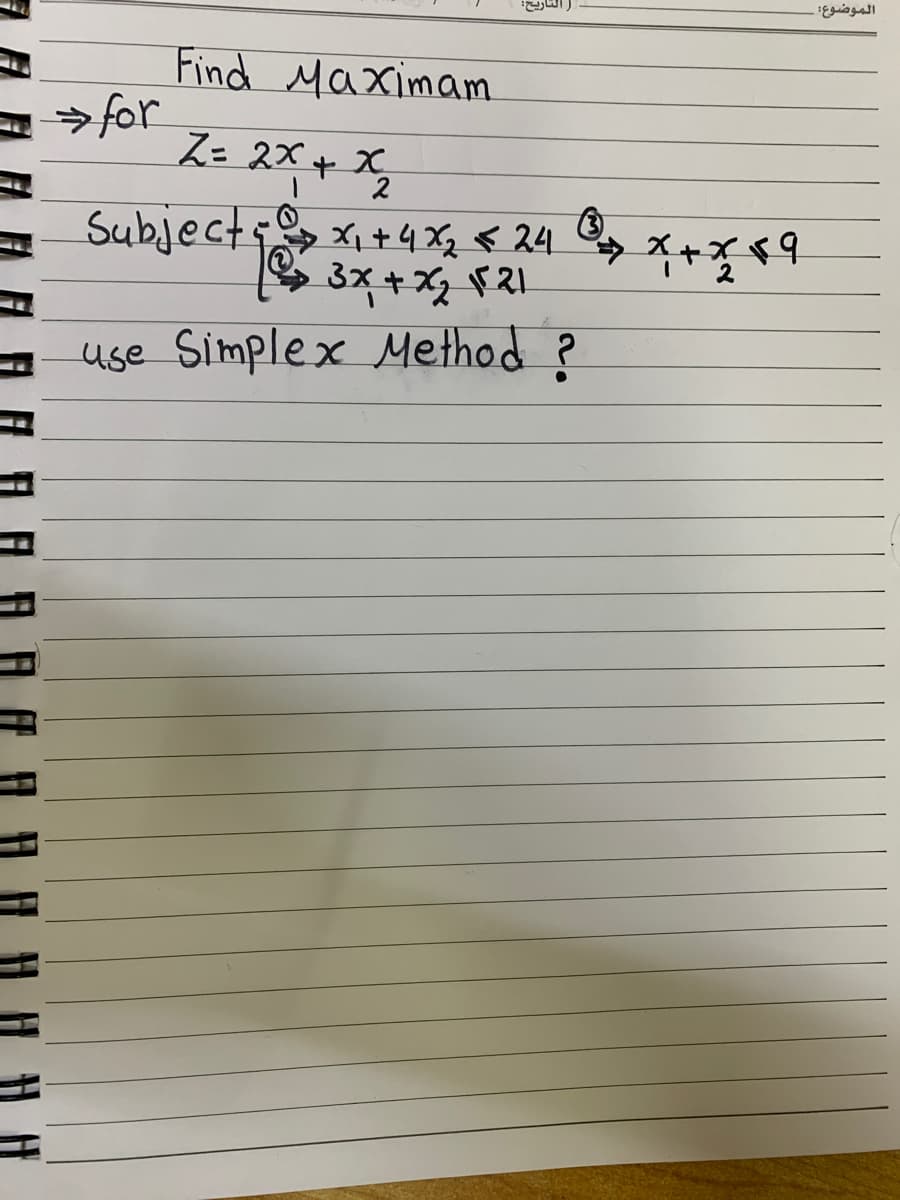 الموضوع: التاريخ: / /
Find Maximam
⇒ for
Z = 2x₁ + x₂
Subject :- ① ⇒ x₁ + 4x₂ ≤ 24 ③ ⇒ x₁ + x₂ ≤ 9
② ⇒ 3x₁ + x₂ ≤ 21
use Simplex Method ?